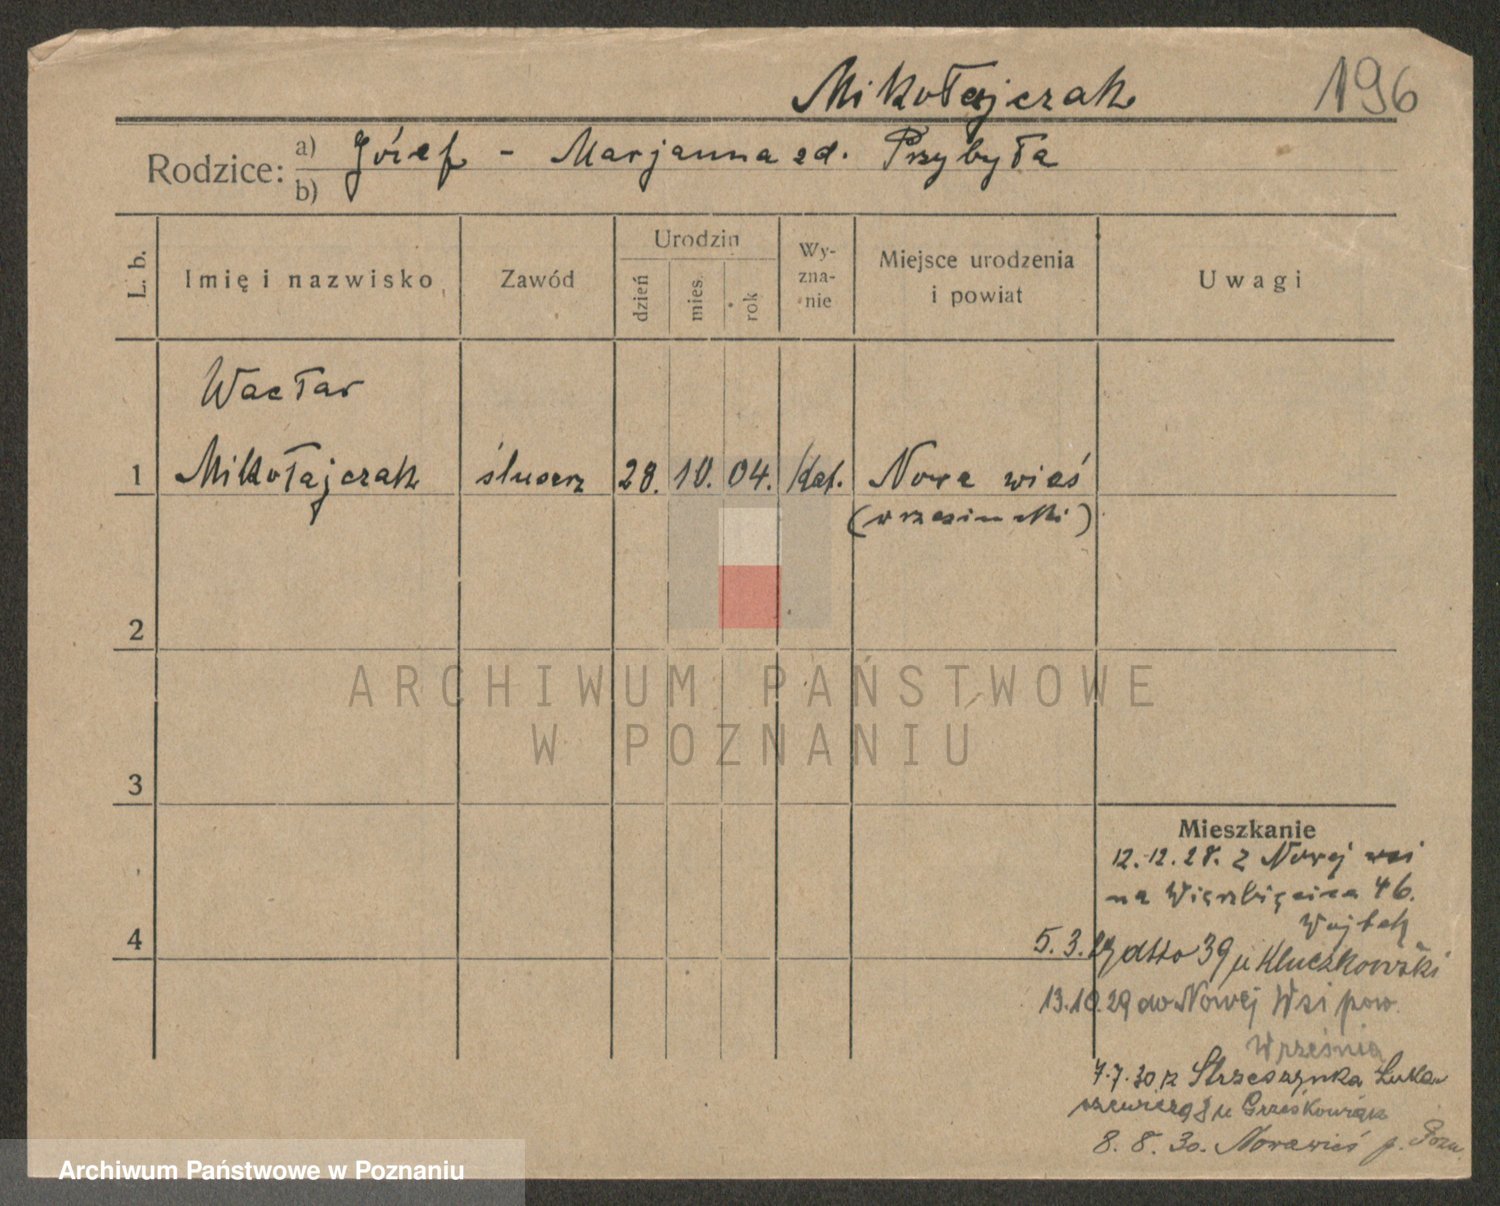 Mikołajczak 196
Rodzice: a) Józef - Marjanna zd. Przybyła
b)
L. b. Imię i nazwisko Zawód Urodzin dzień mies. rok Wy-zna-nie Miejsce urodzenia i powiat Uwagi
Wacław
1 Mikołajczak ślusarz 28. 10. 04. Kat. Nowa wieś
(wrzesiński)
2
ARCHIWUM PAŃSTWOWE
W POZNANIU
3
Mieszkanie
12.12.28. z Nowej wsi
na Wierzbięcice 46.
4 Wojtek
5.3.29 dtto 39 u Kluczkowski
13.10.29 do Nowej Wsi pow.
Września
7.7.30 z Strzeszynka Łuka-
szewicza 8 u Grześkowiak
8.8.30. Nowawieś p. Pozn.
Archiwum Państwowe w Poznaniu